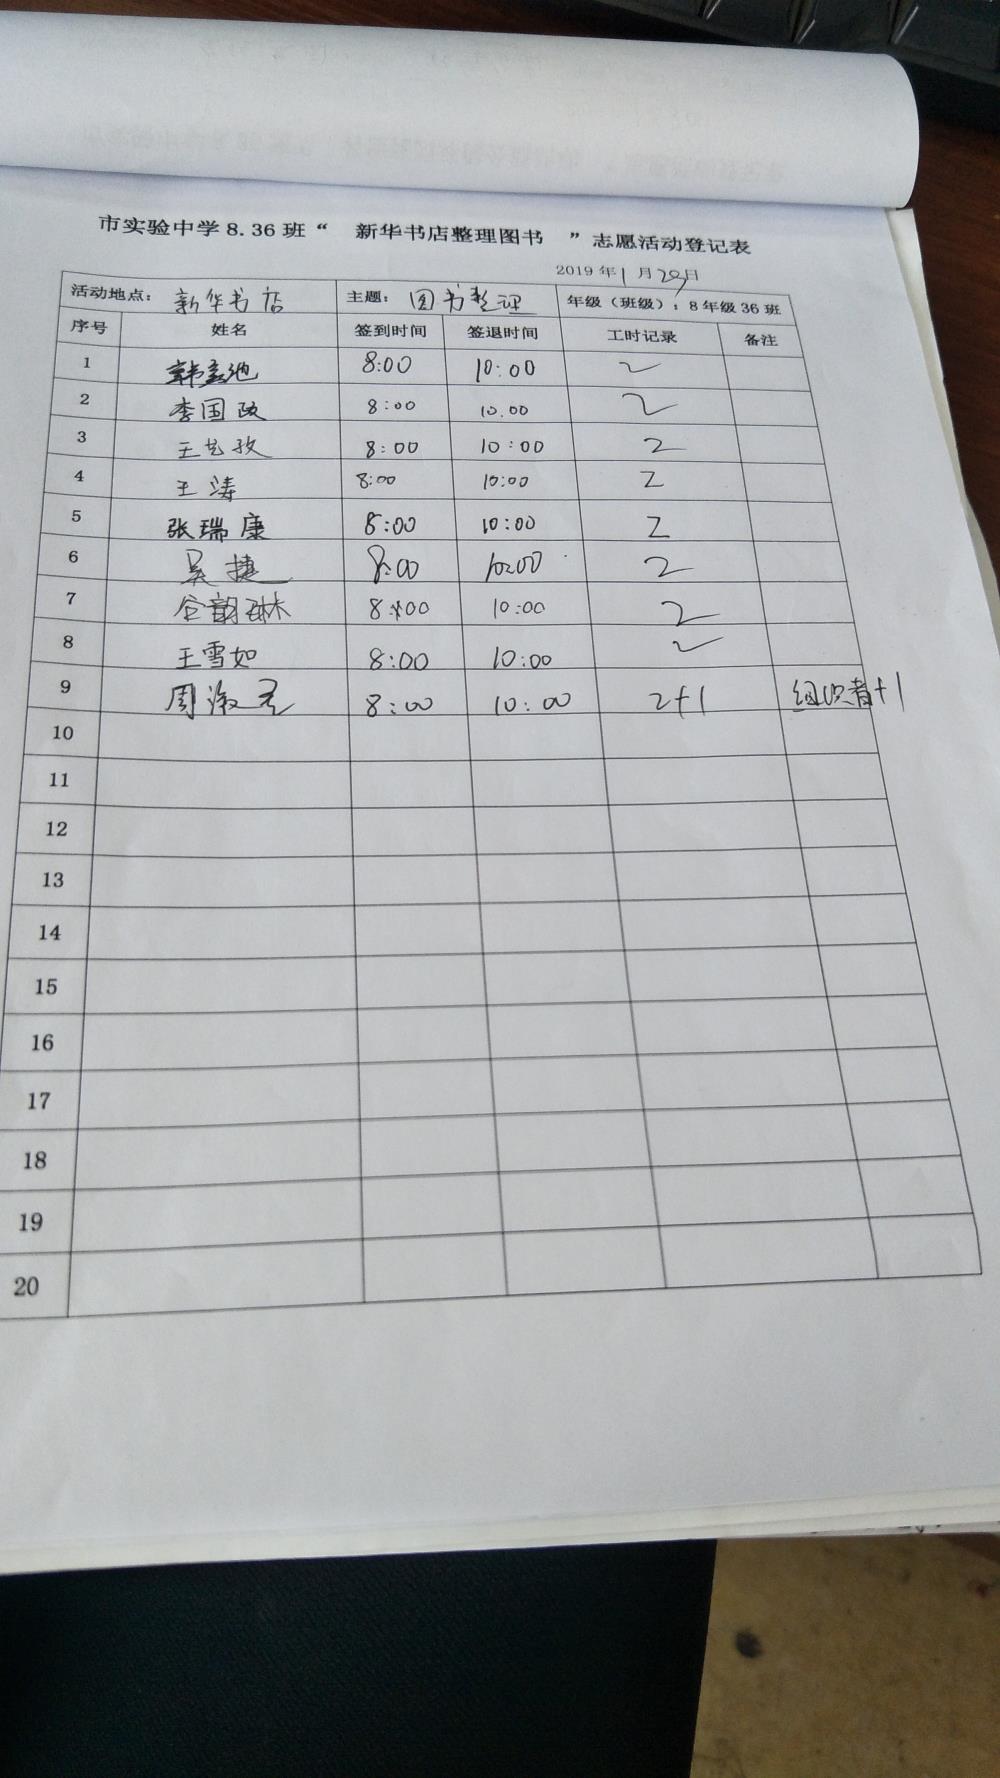 市实验中学8.36班“ 新华书店整理图书 ”志愿活动登记表
2019年1月29日
活动地点：新华书店 主题：图书整理 年级（班级）：8年级36班
序号 姓名 签到时间 签退时间 工时记录 备注
1 韩 8:00 10:00 2
2 李国政 8:00 10.00 2
3 王艺孜 8:00 10:00 2
4 王涛 8:00 10:00 2
5 张瑞康 8:00 10:00 2
6 吴捷 8:00 10:00 2
7 谷韵琳 8:00 10:00 2
8 王雪如 8:00 10:00 2
9 周 8:00 10:00 2+1 组织者+1
10
11
12
13
14
15
16
17
18
19
20